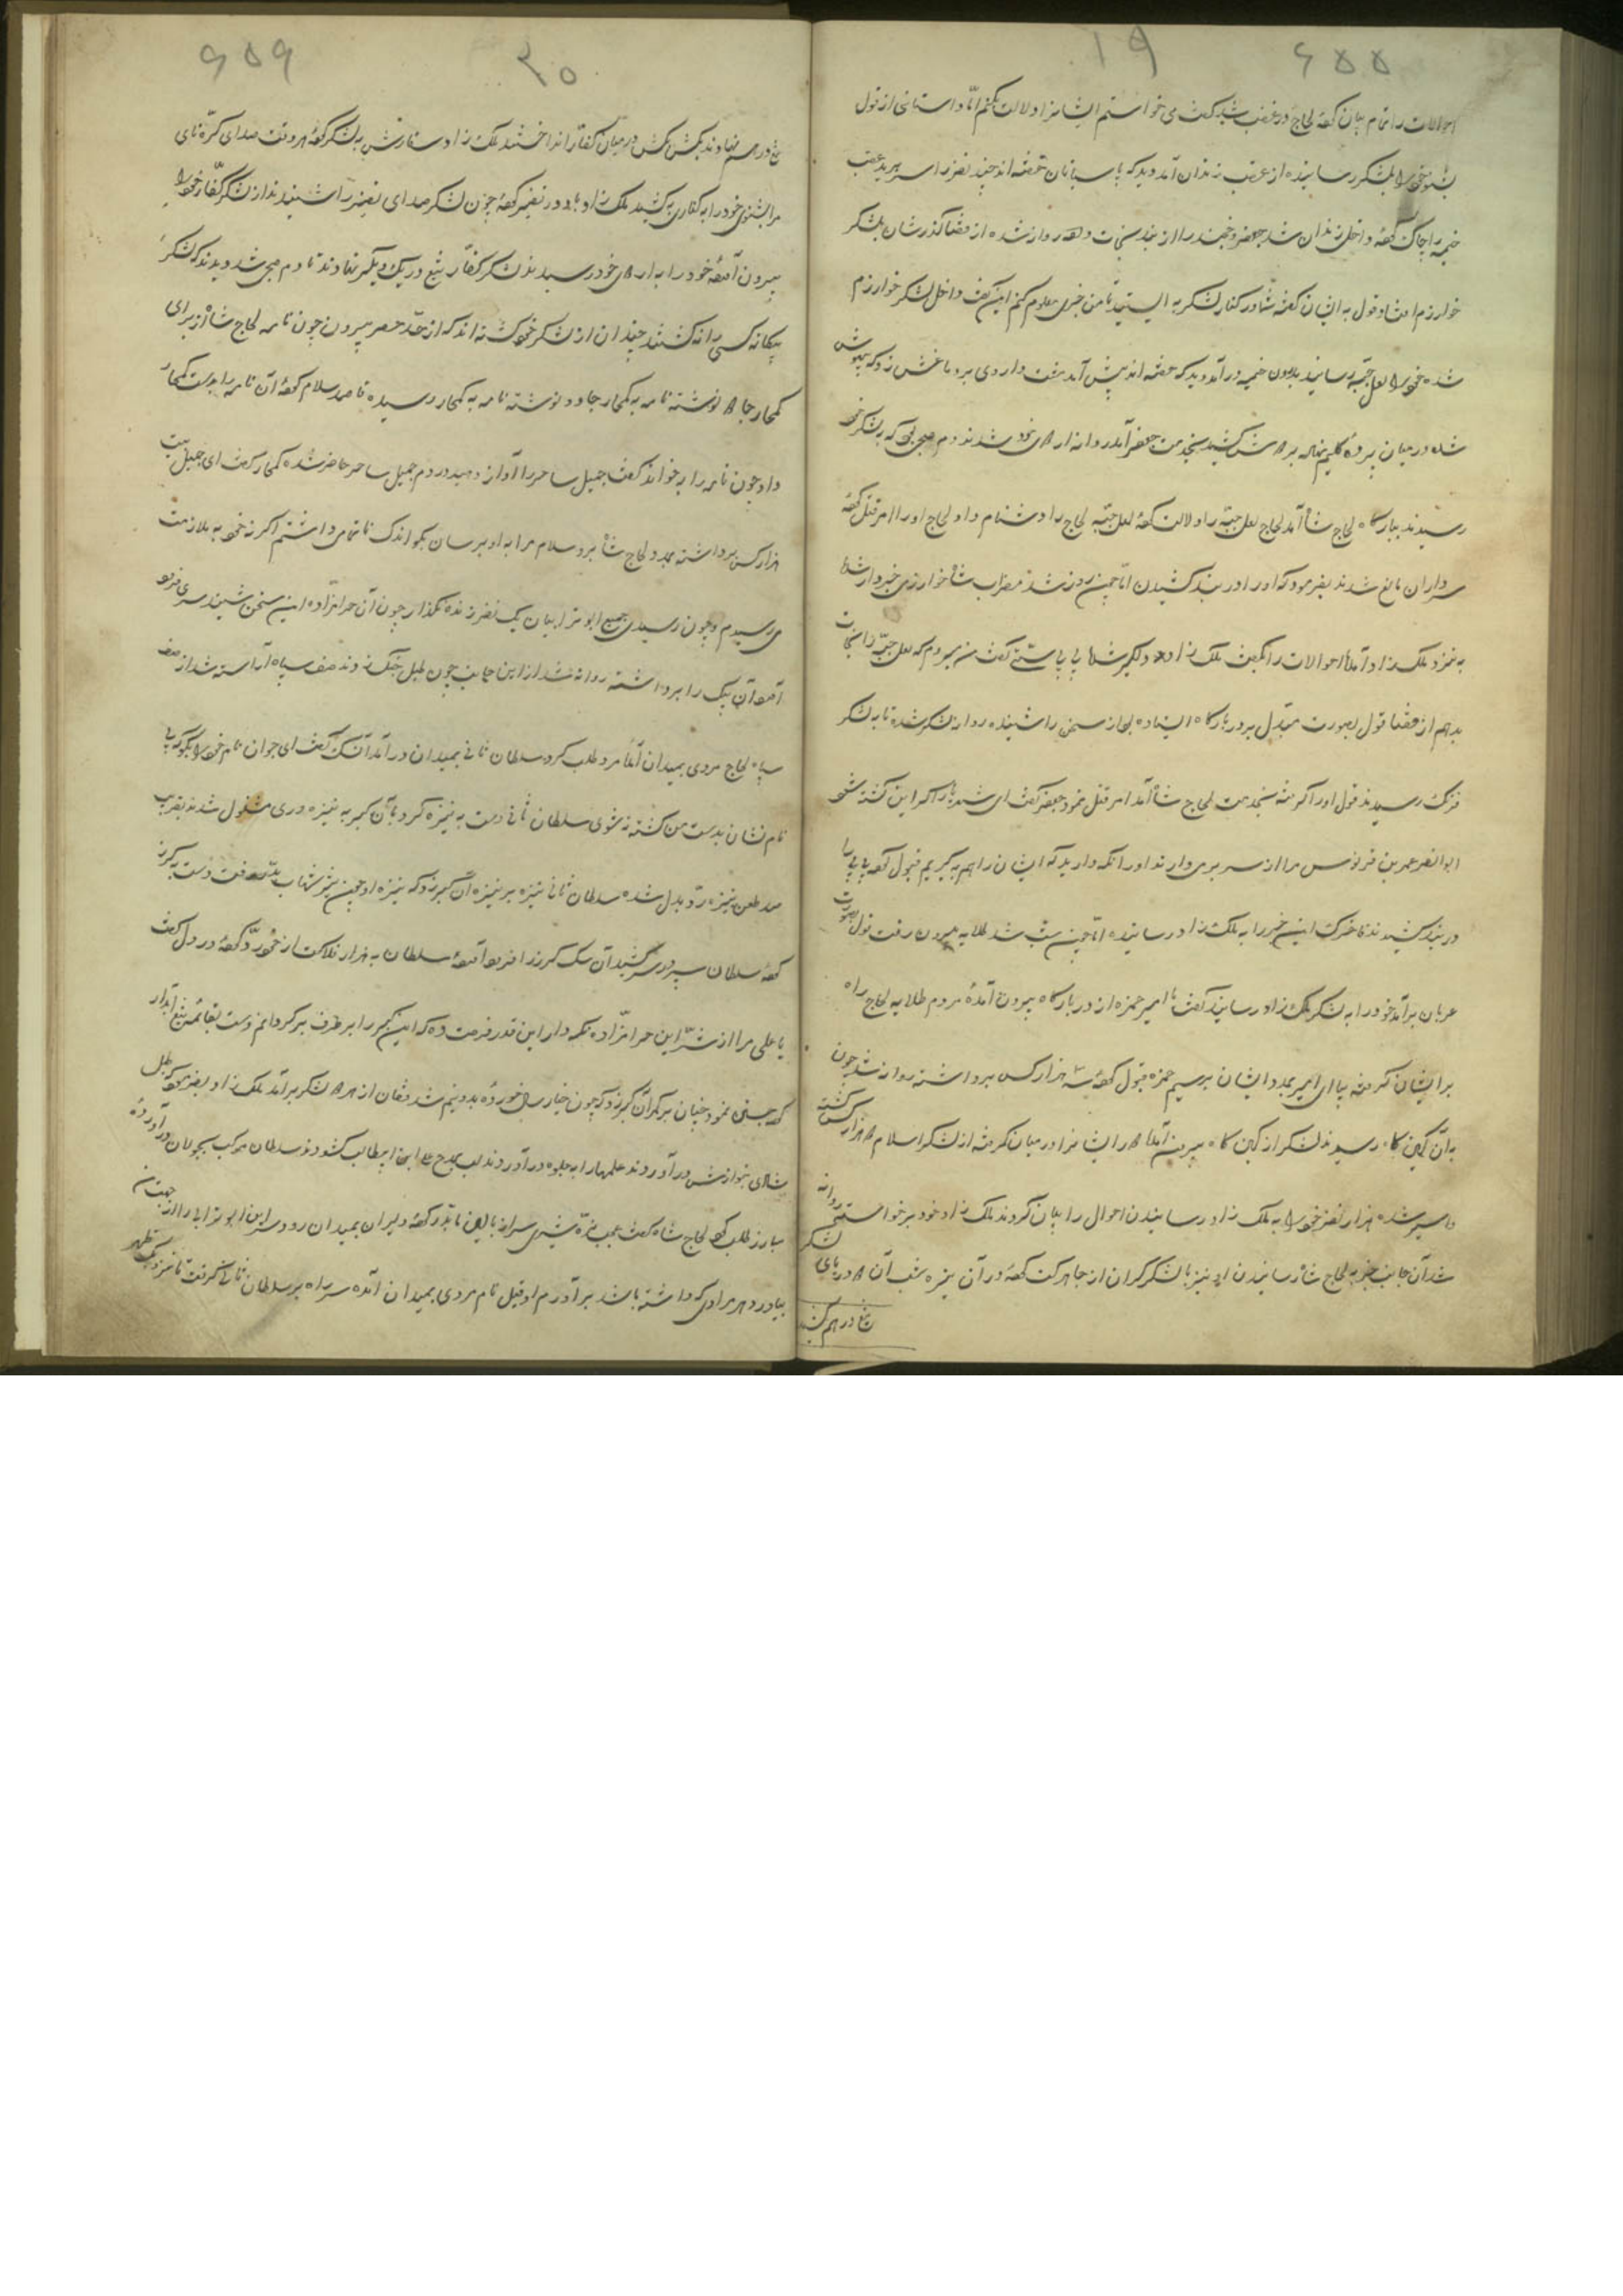 ۶۵۵
۱۹
احوالات را تمام بیان کرده لجاج در غضب شده گفت می خواستم ایشانرا دلالت بکنم امّا داستانی از قول
بشنو خود را بلشکر رسانیده از عقب زندان آمد دید که پاسبانان خفته اند چند نفر را سر برید عقب
خیمه را چاک کرده داخل زندان شد جعفر و جنید را از بند نجات داده روانه شده از قضا گذرشان بلشکر
خوارزم افتاد قول به ایشان گفته شما در کنار لشکر به ایستید تا من خبری معلوم کنم این گفت داخل لشکر خوارزم
شده خود را بلعل جبّه رسانید بدرون خیمه در آمد دید که خفته اند پیش آمد مشت داروی بر دماغش زد که بیهوش
شده در میان پرده گلیم بر دوش کشید بنزد جعفر آمد روانه راه خود شدند دم صبح بود که به لشکر خود
رسیدند ببارگاه لجاج شاه آمد لجاج لعل جبّه را دلالت کرده لعل جبّه لجاج را دشنام داد لجاج او را امر قتل کرده
سرداران مانع شدند بفرمود که او را در بند کشیدن امّا چون روز شد مضراب شاه خوارزمی خبردار شده
به نزد ملک زاد آمده احوالات را بگفت ملک زاد دلگیر شده گفت من میروم که لعل جبّه را نجات
بدهم از قضا قول بصورت مبدل بر در بارگاه ایستاده بود از سخن را شنیده روانه لشکر شده تا به لشکر
فرنگ رسیدند قول او را گرفته بخدمت لجاج شاه آمد امر قتل نمود جعفر گفت ای شهریار اگر این کشته شود
ابوالنصر عمر بن فرنوس ما را از سر بر می دارند او را نگه دارید که ایشان را هم به گیریم قبول کرده
در بند کشیدند تا خبرک این خبر را به ملک زاد رسانیده امّا چون شب شد طلایه بیرون رفت قول بصورت
عربان بر آمد خود را به لشکر ملک زاد رسانید گفت یا امیر حمزه از در بارگاه بیرون آمده مردم طلایه لجاج راه
بر ایشان گرفته بیا ای امیر بمدد ایشان برسیم حمزه قبول کرده سه هزار کس برداشته روانه شد چون
به آن کمین گاه رسیدند لشکر از کمین گاه بیرون آمد ایشانرا در میان گرفته از لشکر اسلام هزار کس کشته
و اسیر شده هزار نفر خود را به ملک زاد رسانیدن احوال را بیان کردند ملک زاد خود بر خواسته روانه
شد آن جانب خبر به لجاج شاه رسانیدن او نیز با لشکر گران از جا حرکت کرده در آن تیره شب آن دو دریای لشکر
تیغ در هم
۶۵۶
۲۰
تیغ در هم نهادند بکش بکش در میان کفّار انداختند ملک زاد سفارش به لشکر کرده هر وقت صدای کرّه نای
مرا بشنوی خود را به کناری بکشید ملک زاد باد در نفیر کرده چون لشکر صدای نفیر را شنیدند از لشکر کفّار خود را
بیرون آمده خود را به اردوی خود رسیدند لشکر کفّار تیغ در یک دیگر نهادند تا دم صبح شد دیدند که لشکر
بیگانه کسی را نه کشتند چندان از لشکر خود کشته اند که از حدّ حصر بیرون چون نامه لجاج شاه از برای
کمخار جادو نوشته نامه به کمخار جادو نوشته نامه به کمخار رسیده قاصد سلام کرده آن نامه را بدست کمخار
داد چون نامه را بر خواند گفت جمیل ساحر را آواز دهید در دم جمیل ساحر حاضر شده کمخار گفت ای جمیل بیست
هزار کس برداشته بمدد لجاج شاه برو سلام مرا به او برسان بگو اندک ناتمامی داشتم اگر نه خود به ملازمت
می رسیدم و چون رسیدی جمیع ابو ترابیان یک نفر زنده مگذار چون آن حرامزاده این سخن شنید سری فرود
آمد آن یک را برداشته روانه شد از این جانب چون طبل جنگ زدند صف سپاه آراسته شد از صف
سپاه لجاج مردی بمیدان آمد مرد طلب کرد سلطان ثانی بمیدان در آمد آن سگ گفت ای جوان نام خود را بگو که بی
نام نشان بدست من کشته نشوی سلطان ثانی دست به نیزه کرد با آن گبر به نیزه وری مشغول شدند بقریب
صد طعن نیزه ردّ بدل شده سلطان ثانی نیزه بر نیزه آن گبر زد که نیزه او چون تیر شهاب بدر رفت دست به گرز
کرده سلطان سپر در سر کشید آن سگ گرز را فرود آمده سلطان به هزار فلاکت از خود ردّ کرده در دل گفت
یا علی مرا از شرّ این حرامزاده نگه دار این قدر فرصت ده که این گبر را بر طرف بر گردانم دست بقائمه تیغ آبدار
کرده جستی نمود چنان بر کمر آن گبر زد که چون خیار سال خورده بدو نیم شد فغان از هر دو لشکر بر آمد ملک زاد بفرمود که طبل
شادی بنوازش در آوردند علمها را به جلوه در آوردند لب بمدح علی ابن ابیطالب کشودند سلطان مرکب بجولان در آورده
مبارز طلب کرد لجاج شاه گفت عجب نرّه شیری سر از بالین نابدر کرده دلیران بمیدان رود سر این ابو ترابی را از جهت من
بیاورد هر مرادی که داشته باشد بر آورم اوقیل نام مردی بمیدان آمده سر راه بر سلطان ثانی گرفت تا نزدیک ظهر